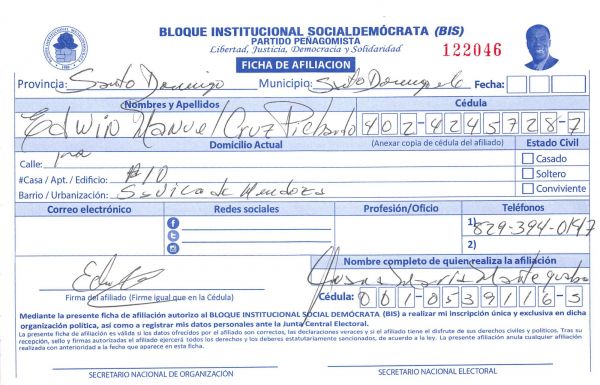 BLOQUE INSTITUCIONAL SOCIALDEMÓCRATA (BIS)
PARTIDO PEÑAGOMISTA
Libertad, Justicia, Democracia y Solidaridad
FICHA DE AFILIACION
122046
Provincia: Santo Domingo Municipio: Sto Domingo Fecha:
Nombres y Apellidos Cédula
Edwin Manuel Cruz Pichardo 402-4245728-7
Domicilio Actual (Anexar copia de cédula del afiliado) Estado Civil
Calle: Casado
#Casa / Apt. / Edificio: #10 Soltero
Barrio / Urbanización: de Mendoza Conviviente
Correo electrónico Redes sociales Profesión/Oficio Teléfonos
1) 829-394-0147
2)
Nombre completo de quien realiza la afiliación
Juana Maria
Firma del afiliado (Firme igual que en la Cédula) Cédula: 001-0539116-3
Mediante la presente ficha de afiliación autorizo al BLOQUE INSTITUCIONAL SOCIAL DEMÓCRATA (BIS) a realizar mi inscripción única y exclusiva en dicha
organización política, así como a registrar mis datos personales ante la Junta Central Electoral.
La presente ficha de afiliación es válida si los datos ofrecidos por el afiliado son correctos, las declaraciones veraces y si el afiliado tiene el disfrute de sus derechos civiles y políticos. Tras su
recepción, sello y firmas autorizadas el afiliado ejercerá todos los derechos y los deberes estatutariamente sancionados, de acuerdo a la ley. La presente afiliación anula cualquier afiliación
realizada con anterioridad a la fecha que aparece en esta ficha.
SECRETARIO NACIONAL DE ORGANIZACIÓN SECRETARIO NACIONAL ELECTORAL